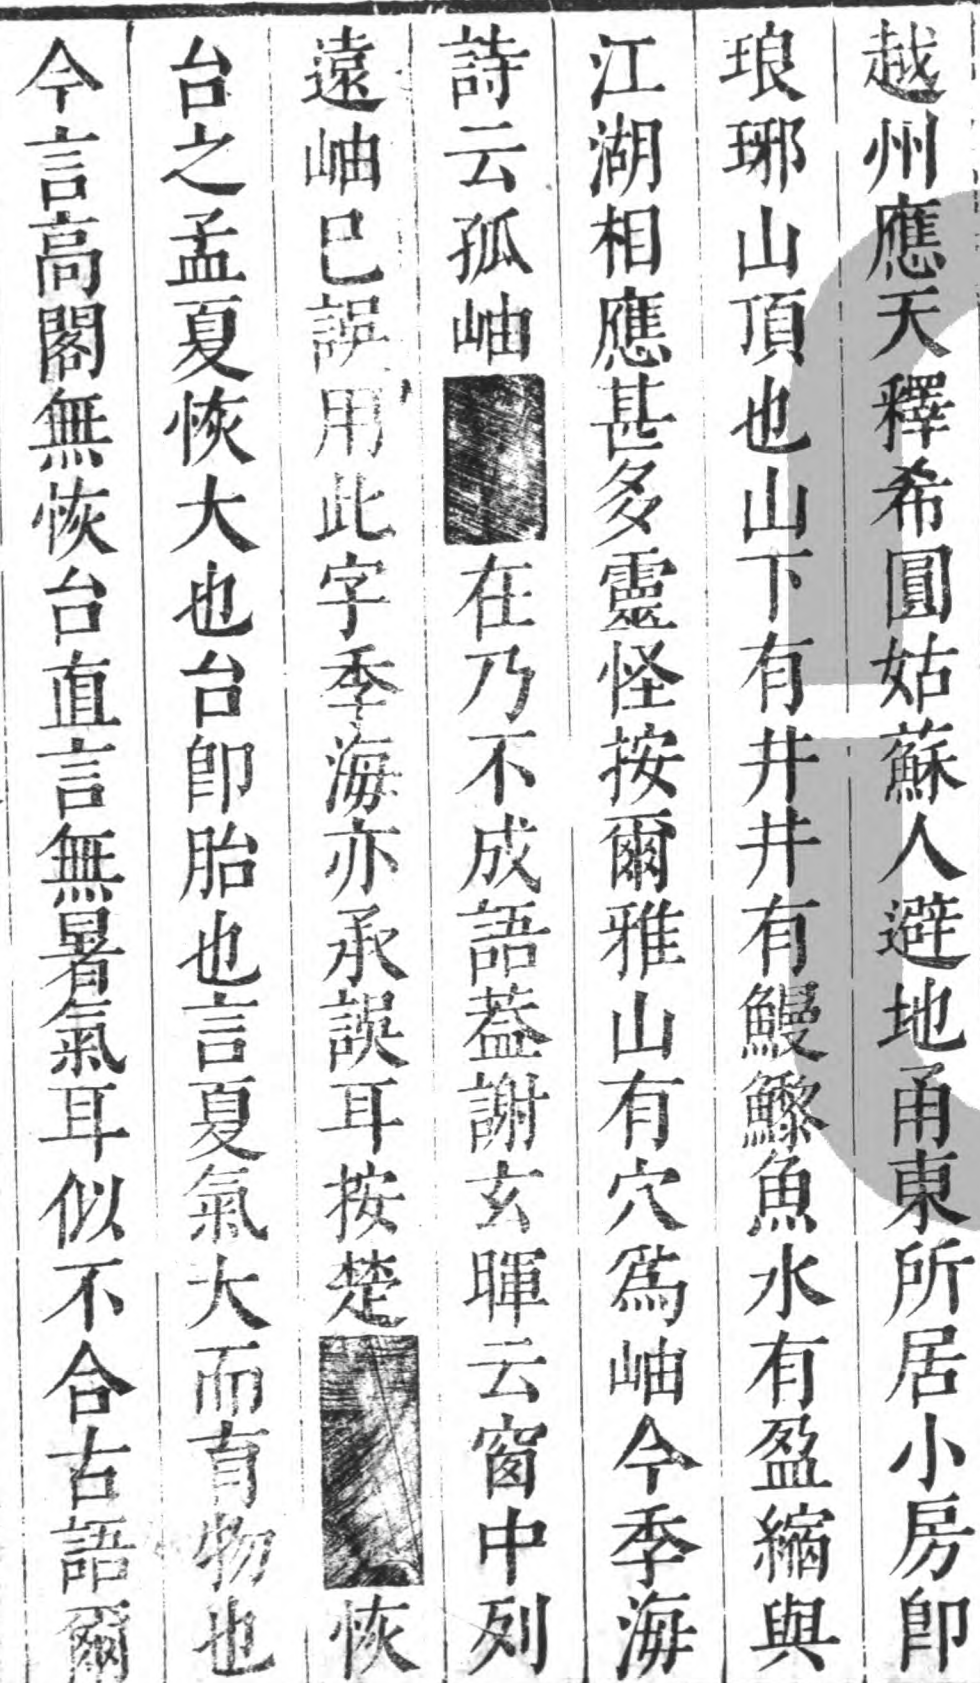 越州應天釋希圓姑蘇人避地甬東所居小房卽
琅琊山頂也山下有井井有鰻鱺魚水有盈縮與
江湖相應甚多靈怪按爾雅山有穴爲岫今季海
詩云孤岫在乃不成語葢謝玄暉云窗中列
遠岫巳誤用此字季海亦承誤耳按楚恢
台之孟夏恢大也台卽胎也言夏氣大而育物也
今言高閣無恢台直言無暑氣耳似不合古語爾